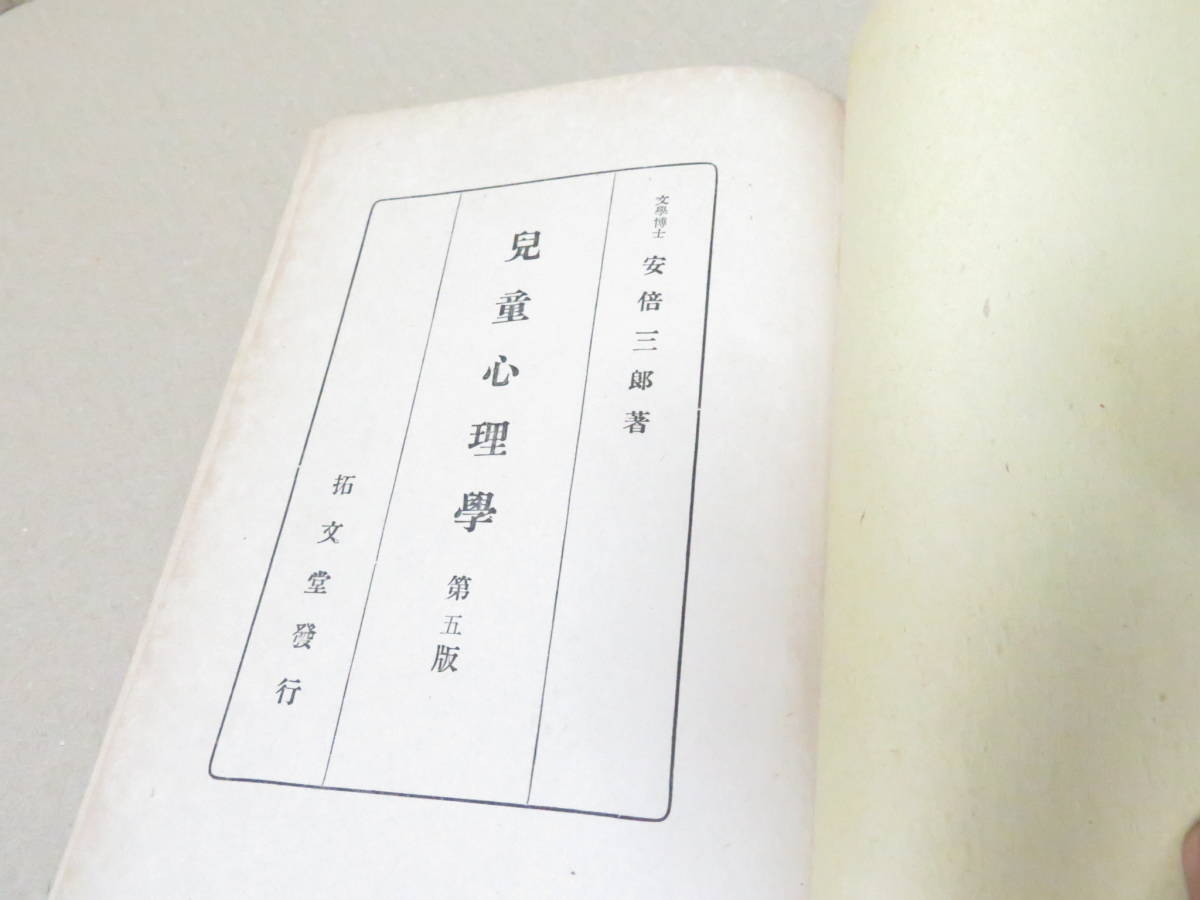 文學博士 安倍三郎著
兒童心理學 第五版
拓文堂發行